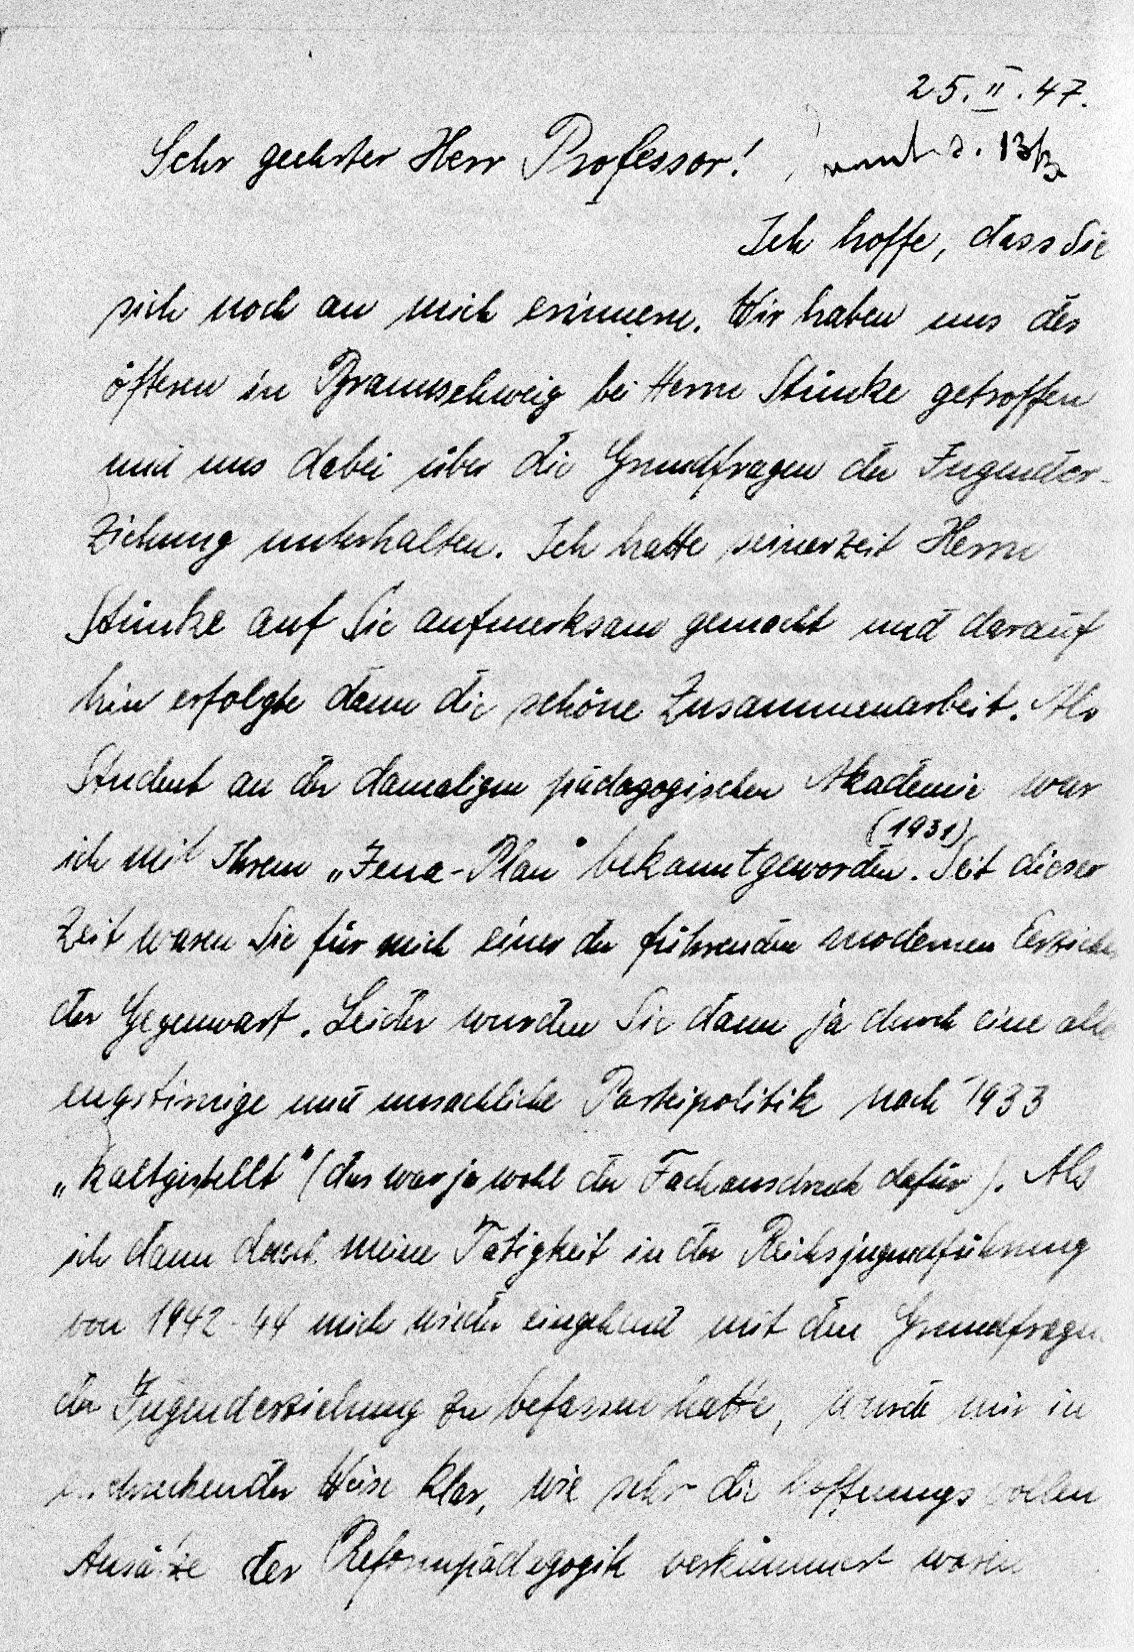 25.II.47.
Sehr geehrter Herr Professor!
13/3
Ich hoffe, dass Sie
sich noch an mich erinnern. Wir haben uns des
öfteren in Braunschweig bei Herrn Stünke getroffen
und uns dabei über die Grundfragen der Jugender-
ziehung unterhalten. Ich hatte seinerzeit Herrn
Stünke auf Sie aufmerksam gemacht und darauf
hin erfolgte dann die schöne Zusammenarbeit. Als
Student an der damaligen pädagogischen Akademie war
(1931)
ich mit Ihrem „Jena-Plan" bekanntgeworden. Seit dieser
Zeit waren Sie für mich einer der führenden modernen Erzieher
der Gegenwart. Leider wurden Sie dann ja durch eine
engstirnige und unsachliche Parteipolitik nach 1933
„kaltgestellt" (das war ja wohl der Fachausdruck dafür). Als
ich dann durch meine Tätigkeit in der Reichsjugendführung
von 1942-44 mich wieder eingehend mit den Grundfragen
der Jugenderziehung zu befassen hatte, wurde mir in
erschreckender Weise klar, wie sehr die hoffnungsvollen
Ansätze der Reformpädagogik verkümmert waren